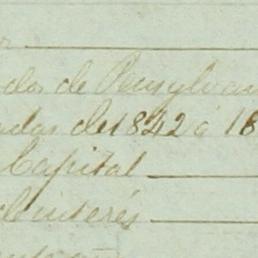 dos de Pensylvan
adas de 1842 á 18
Capital
de interés